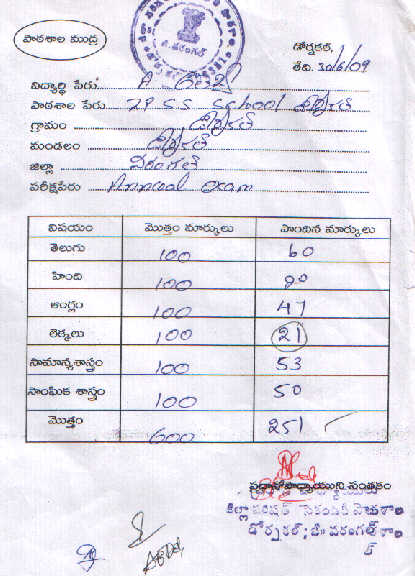 పాఠశాల ముద్ర
డోర్నకల్,
తేది. 30/6/09
విద్యార్థి పేరు
పాఠశాల పేరు Z.P.S.S. School డోర్నకల్
గ్రామం డోర్నకల్
మండలం డోర్నకల్
జిల్లా వరంగల్
పరీక్షపేరు Annual Exam
విషయం మొత్తం మార్కులు పొందిన మార్కులు
తెలుగు 100 60
హింది 100 20
ఆంగ్లం 100 47
లెక్కలు 100 21
సామాన్యశాస్త్రం 100 53
సాంఘిక శాస్త్రం 100 50
మొత్తం 600 251
ప్రధానోపాధ్యాయుని సంతకం
జిల్లా పరిషత్ సెకండరీ పాఠశాల
డోర్నకల్; జి వరంగల్